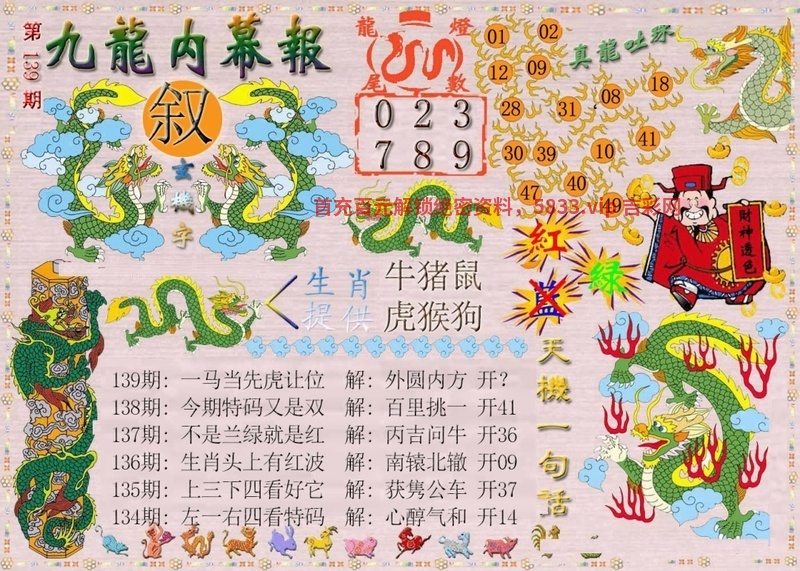 第139期
九龍内幕報
叙
玄機字
龍燈
尾數
0 2 3
7 8 9
真龍吐珠
01 02
12 09
28 31 08 18
30 39 10 41
47 40 49
首充百元解锁绝密资料，5833.vip吉彩网
紅
藍
绿
財神透色
生肖
提供
牛猪鼠
虎猴狗
天機一句話
139期: 一马当先虎让位 解: 外圆内方 开?
138期: 今期特码又是双 解: 百里挑一 开41
137期: 不是兰绿就是红 解: 丙吉问牛 开36
136期: 生肖头上有红波 解: 南辕北辙 开09
135期: 上三下四看好它 解: 获隽公车 开37
134期: 左一右四看特码 解: 心醇气和 开14